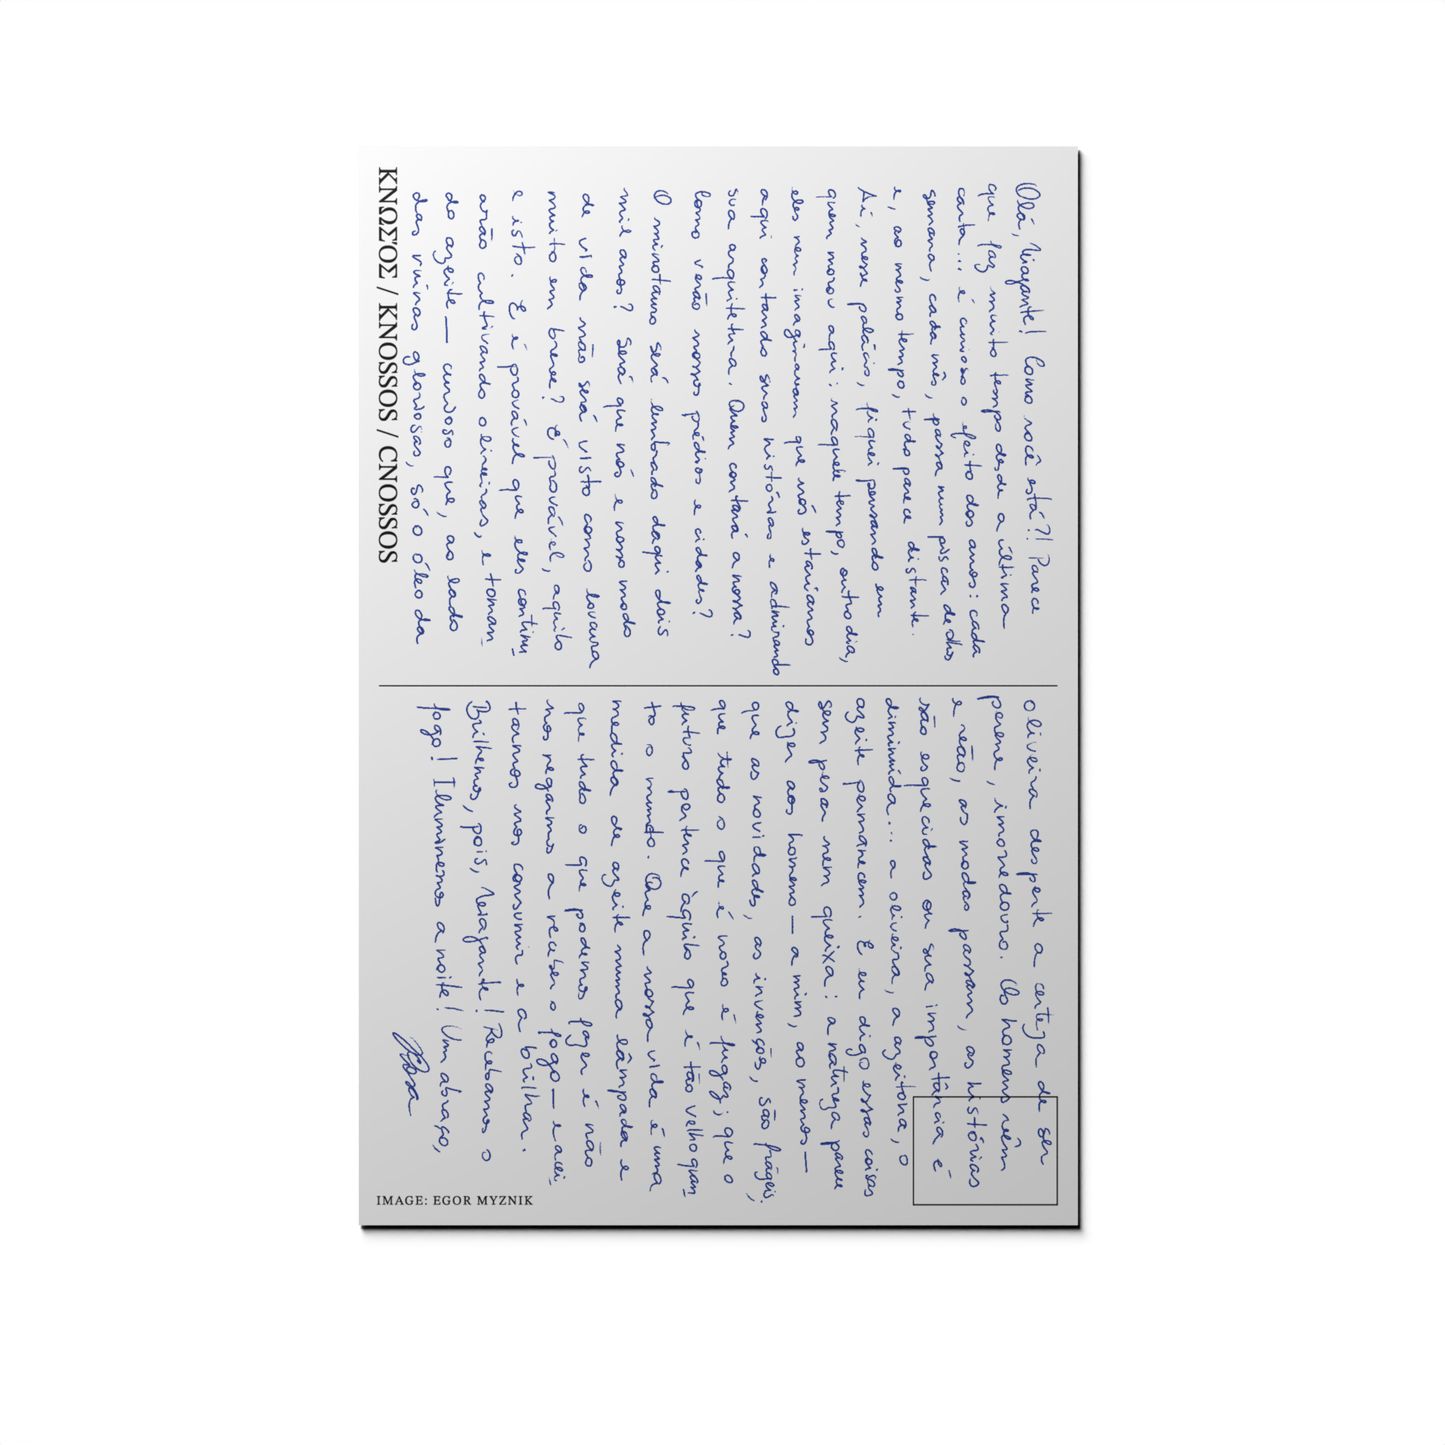 Olá, Viajante! Como você está?! Parece
que faz muito tempo desde a última
carta... é curioso o efeito dos anos: cada
semana, cada mês, passa num piscar de olhos
e, ao mesmo tempo, tudo parece distante.
Aí, nesse palácio, fiquei pensando em
quem morou aqui: naquele tempo, outro dia,
eles nem imaginavam que nós estaríamos
aqui contando suas histórias e admirando
sua arquitetura. Quem contará a nossa?
Como verão nossos prédios e cidades?
O minotauro será lembrado daqui dois
mil anos? Será que nós e nosso modo
de vida não será visto como loucura
muito em breve? É provável, aquilo
e isto. E é provável que eles continu
arão cultivando oliveiras, e toman
do azeite — curioso que, ao lado
das ruínas gloriosas, só o óleo da
KNΩΣΌΣ / KNOSSOS / CNOSSOS
oliveira desperte a certeza de ser
perene, imorredouro. Os homens vêm
e vão, as modas passam, as histórias
são esquecidas ou sua importância é
diminuída... a oliveira, a azeitona, o
azeite permanecem. E eu digo essas coisas
sem pesar nem queixa: a natureza parece
dizer aos homens — a mim, ao menos —
que as novidades, as invenções, são frágeis;
que tudo o que é novo é fugaz; que o
futuro pertence àquilo que é tão velho quan
to o mundo. Que a nossa vida é uma
medida de azeite numa lâmpada e
que tudo o que podemos fazer é não
nos negarmos a receber o fogo — e acei-
tarmos nos consumir e a brilhar.
Brilhemos, pois, Viajante! Recebamos o
fogo! Iluminemos a noite! Um abraço,
Rosa
IMAGE: EGOR MYZNIK